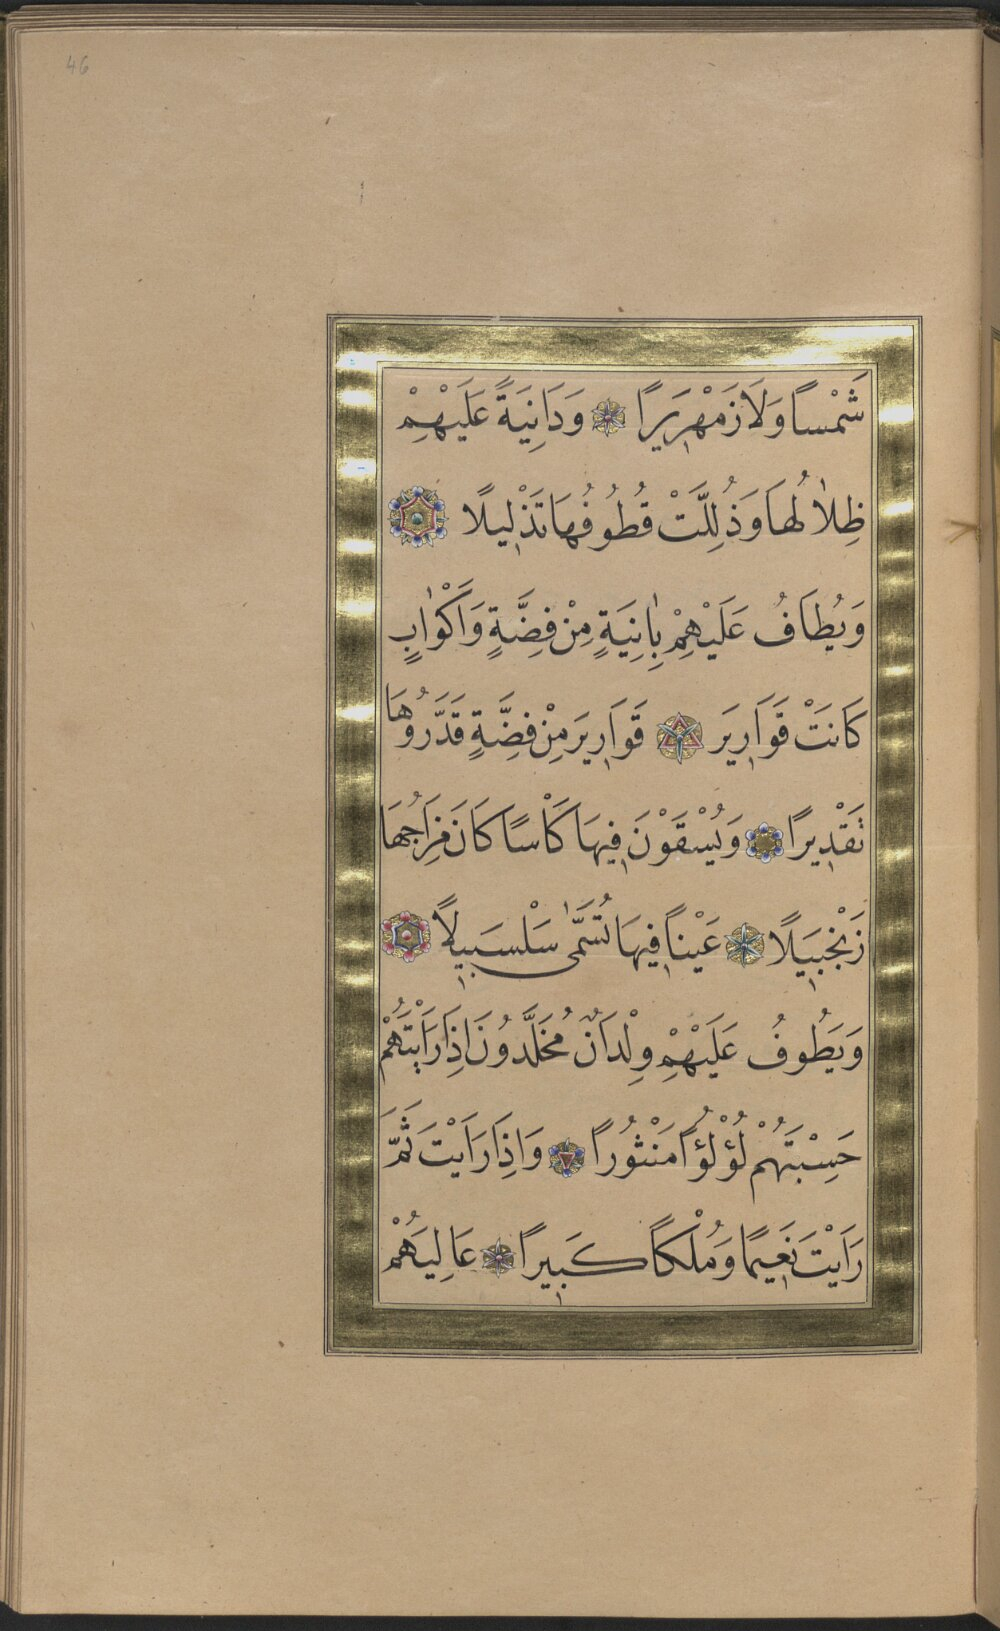 46
شَمْساً وَلَا زَمْهَرِيرًا وَدَانِيَةً عَلَيْهِمْ
ظِلَالُهَا وَذُلِّلَتْ قُطُوفُهَا تَذْلِيلًا
وَيُطَافُ عَلَيْهِمْ بِاٰنِيَةٍ مِنْ فِضَّةٍ وَاَكْوَابٍ
كَانَتْ قَوَارِيرَ قَوَارِيرَ مِنْ فِضَّةٍ قَدَّرُوهَا
تَقْدِيرًا وَيُسْقَوْنَ فِيهَا كَاْسًا كَانَ مِزَاجُهَا
زَنْجَبِيلًا عَيْناً فِيهَا تُسَمّٰى سَلْسَبِيلًا
وَيَطُوفُ عَلَيْهِمْ وِلْدَانٌ مُخَلَّدُونَ اِذَا رَاَيْتَهُمْ
حَسِبْتَهُمْ لُؤْلُؤًا مَنْثُورًا وَاِذَا رَاَيْتَ ثَمَّ
رَاَيْتَ نَعِيمًا وَمُلْكًا كَبِيرًا عَالِيَهُمْ